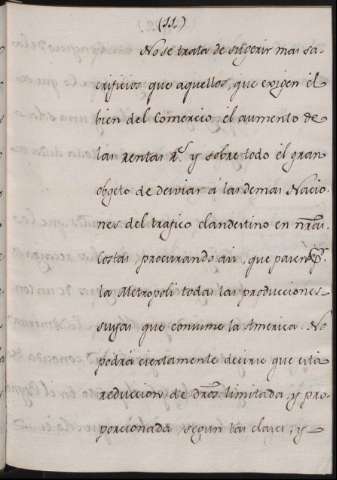 (11)
No se trata de sugerir mas sa-
crificios que aquellos, que exigen el
bien del Comercio, el aumento de
las rentas R.s y sobre todo el gran
objeto de desviar á las demas Nacio-
nes del trafico clandestino en nrãs
costas, procurando asi, que pasen p.r
la Metropoli todas las producciones
suyas que consume la America. No
podrá ciertamente decirse que está
reduccion de dros. limitada y pro-
porcionada segun las clases, y